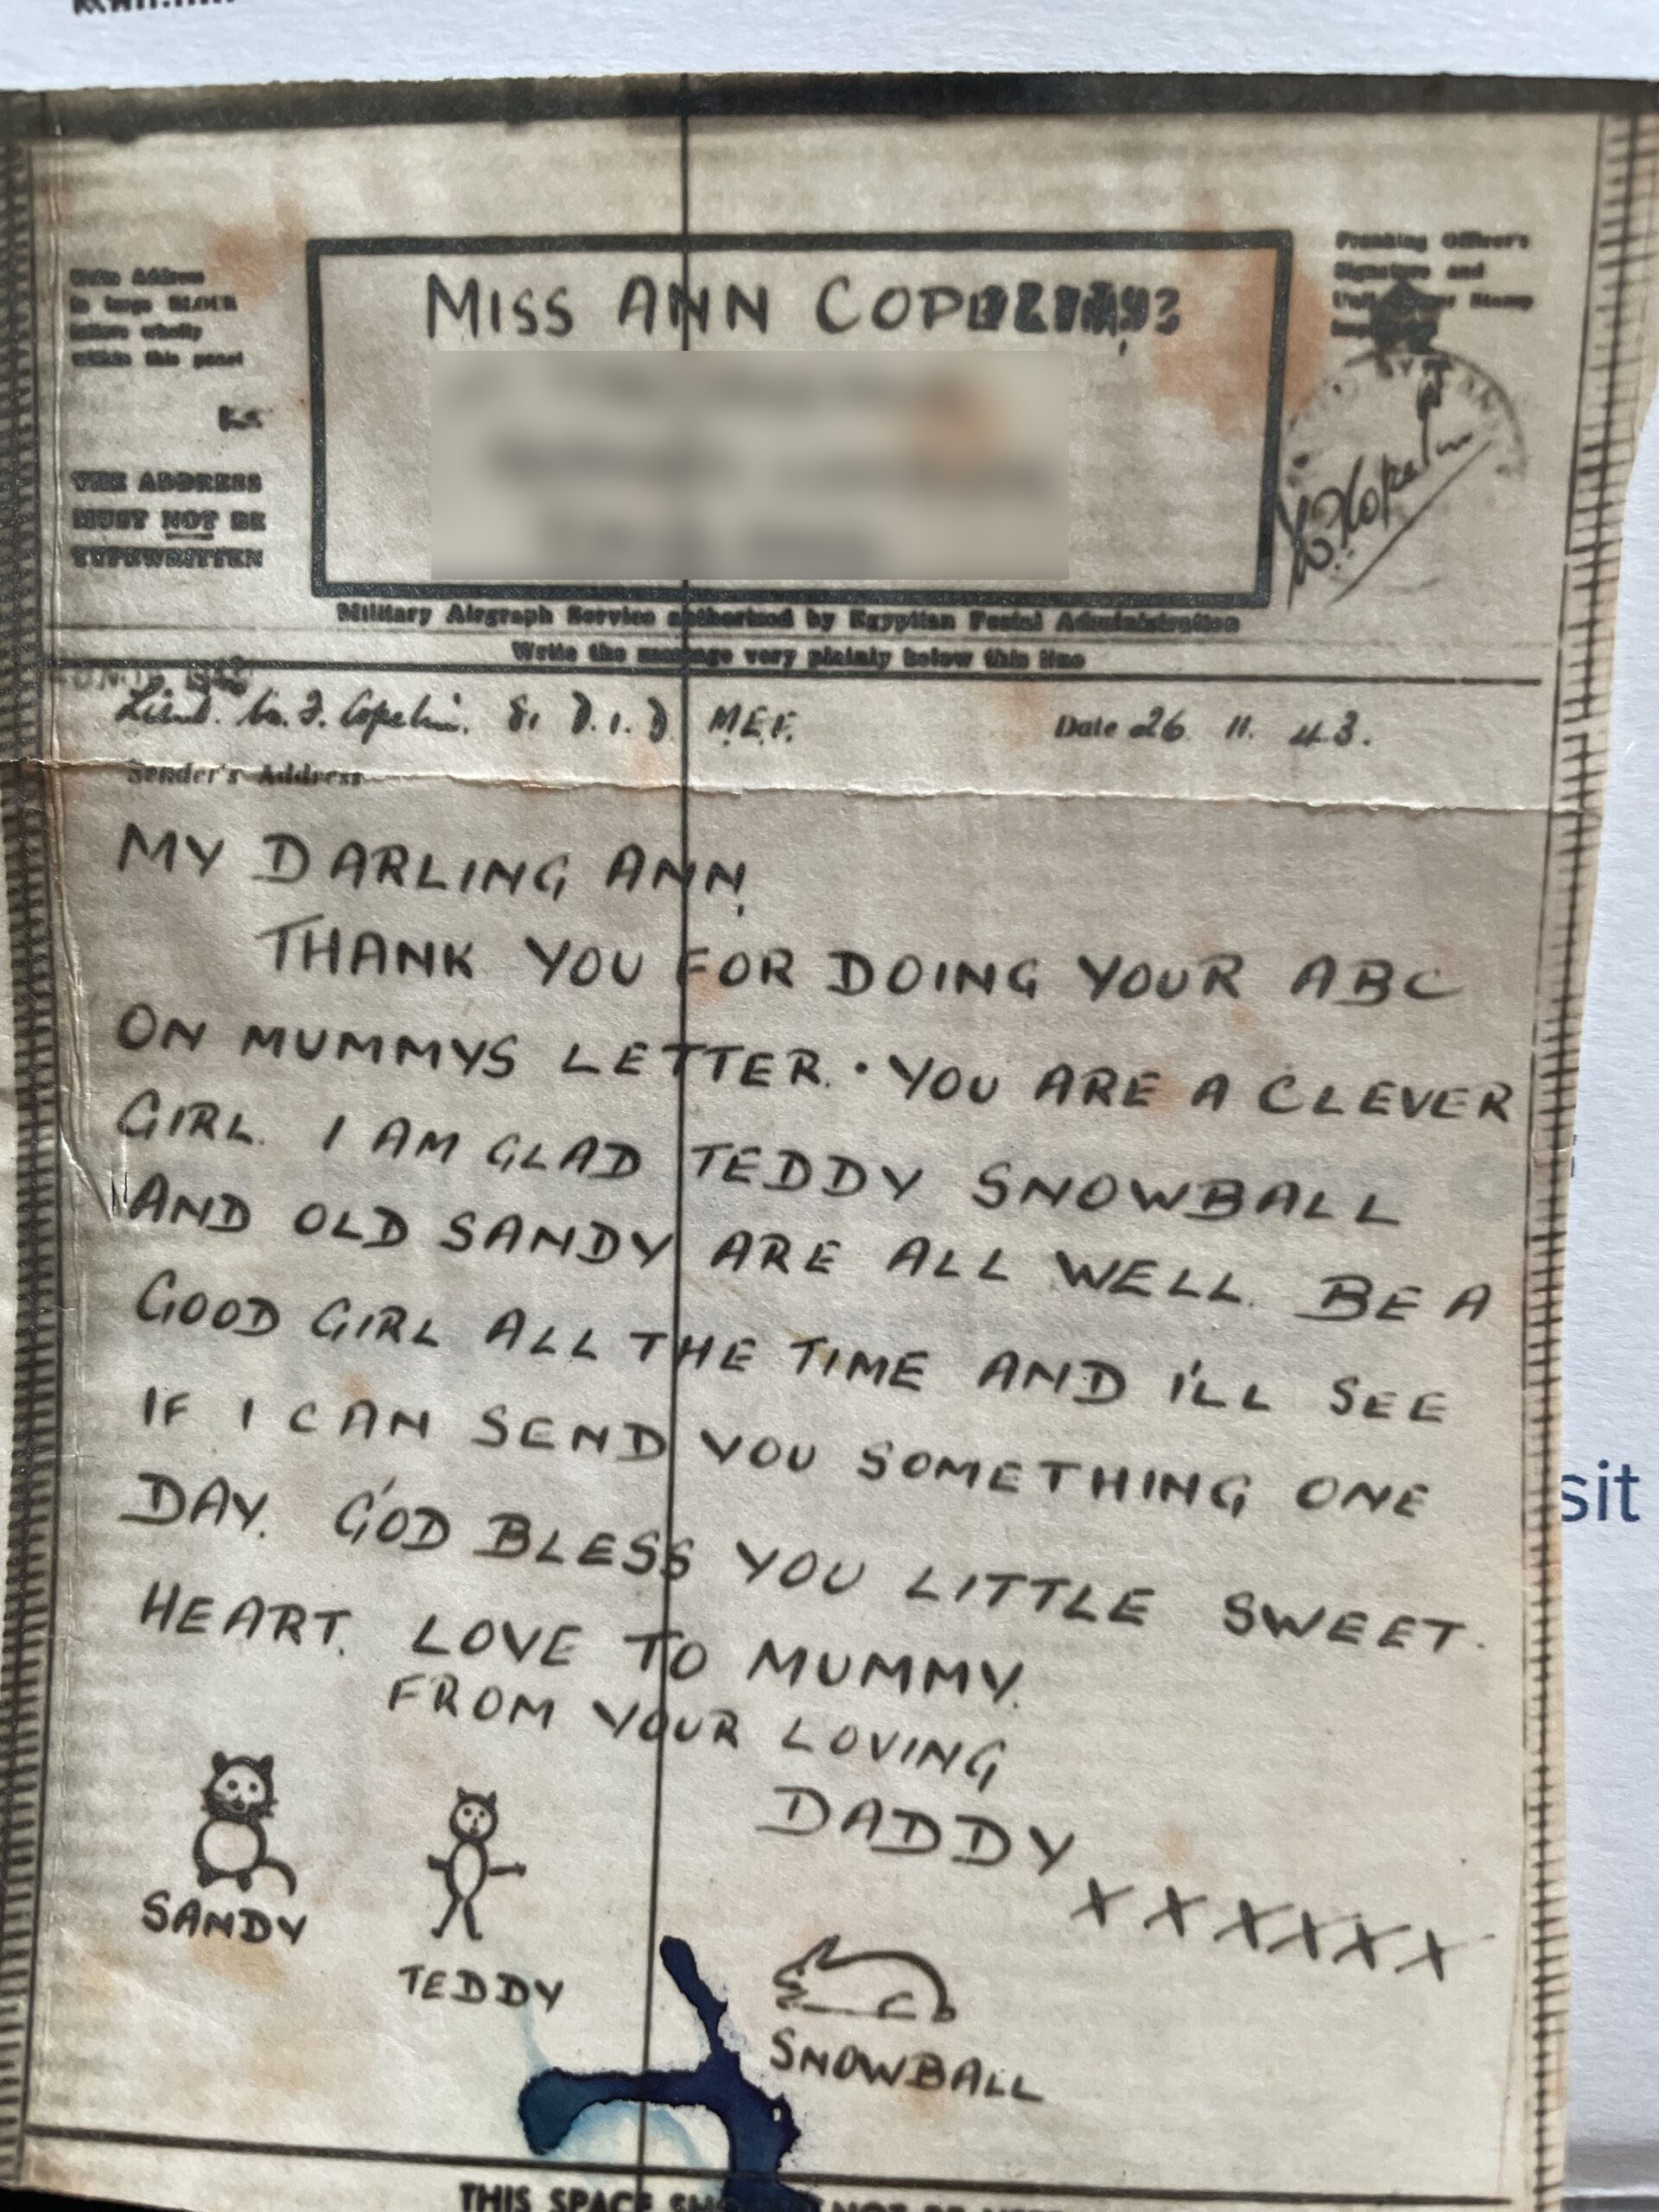 MISS ANN
Franking Officer's
Signature and
Stamp
Write Address
in large BLOCK
letters wholly
within this panel
THE ADDRESS
MUST NOT BE
TYPEWRITTEN
Military Airgraph Service authorized by Egyptian Postal Administration
Write the message very plainly below this line
Lieut. Copelin. M.E.F. Date 26. 11. 43.
Sender's Address
MY DARLING ANN,
THANK YOU FOR DOING YOUR ABC
ON MUMMYS LETTER. YOU ARE A CLEVER
GIRL. I AM GLAD TEDDY SNOWBALL
AND OLD SANDY ARE ALL WELL. BE A
GOOD GIRL ALL THE TIME AND I'LL SEE
IF I CAN SEND YOU SOMETHING ONE
DAY. GOD BLESS YOU LITTLE SWEET.
HEART. LOVE TO MUMMY.
FROM YOUR LOVING
DADDY
X X X X X X
SANDY
TEDDY
SNOWBALL
THIS SPACE
sit